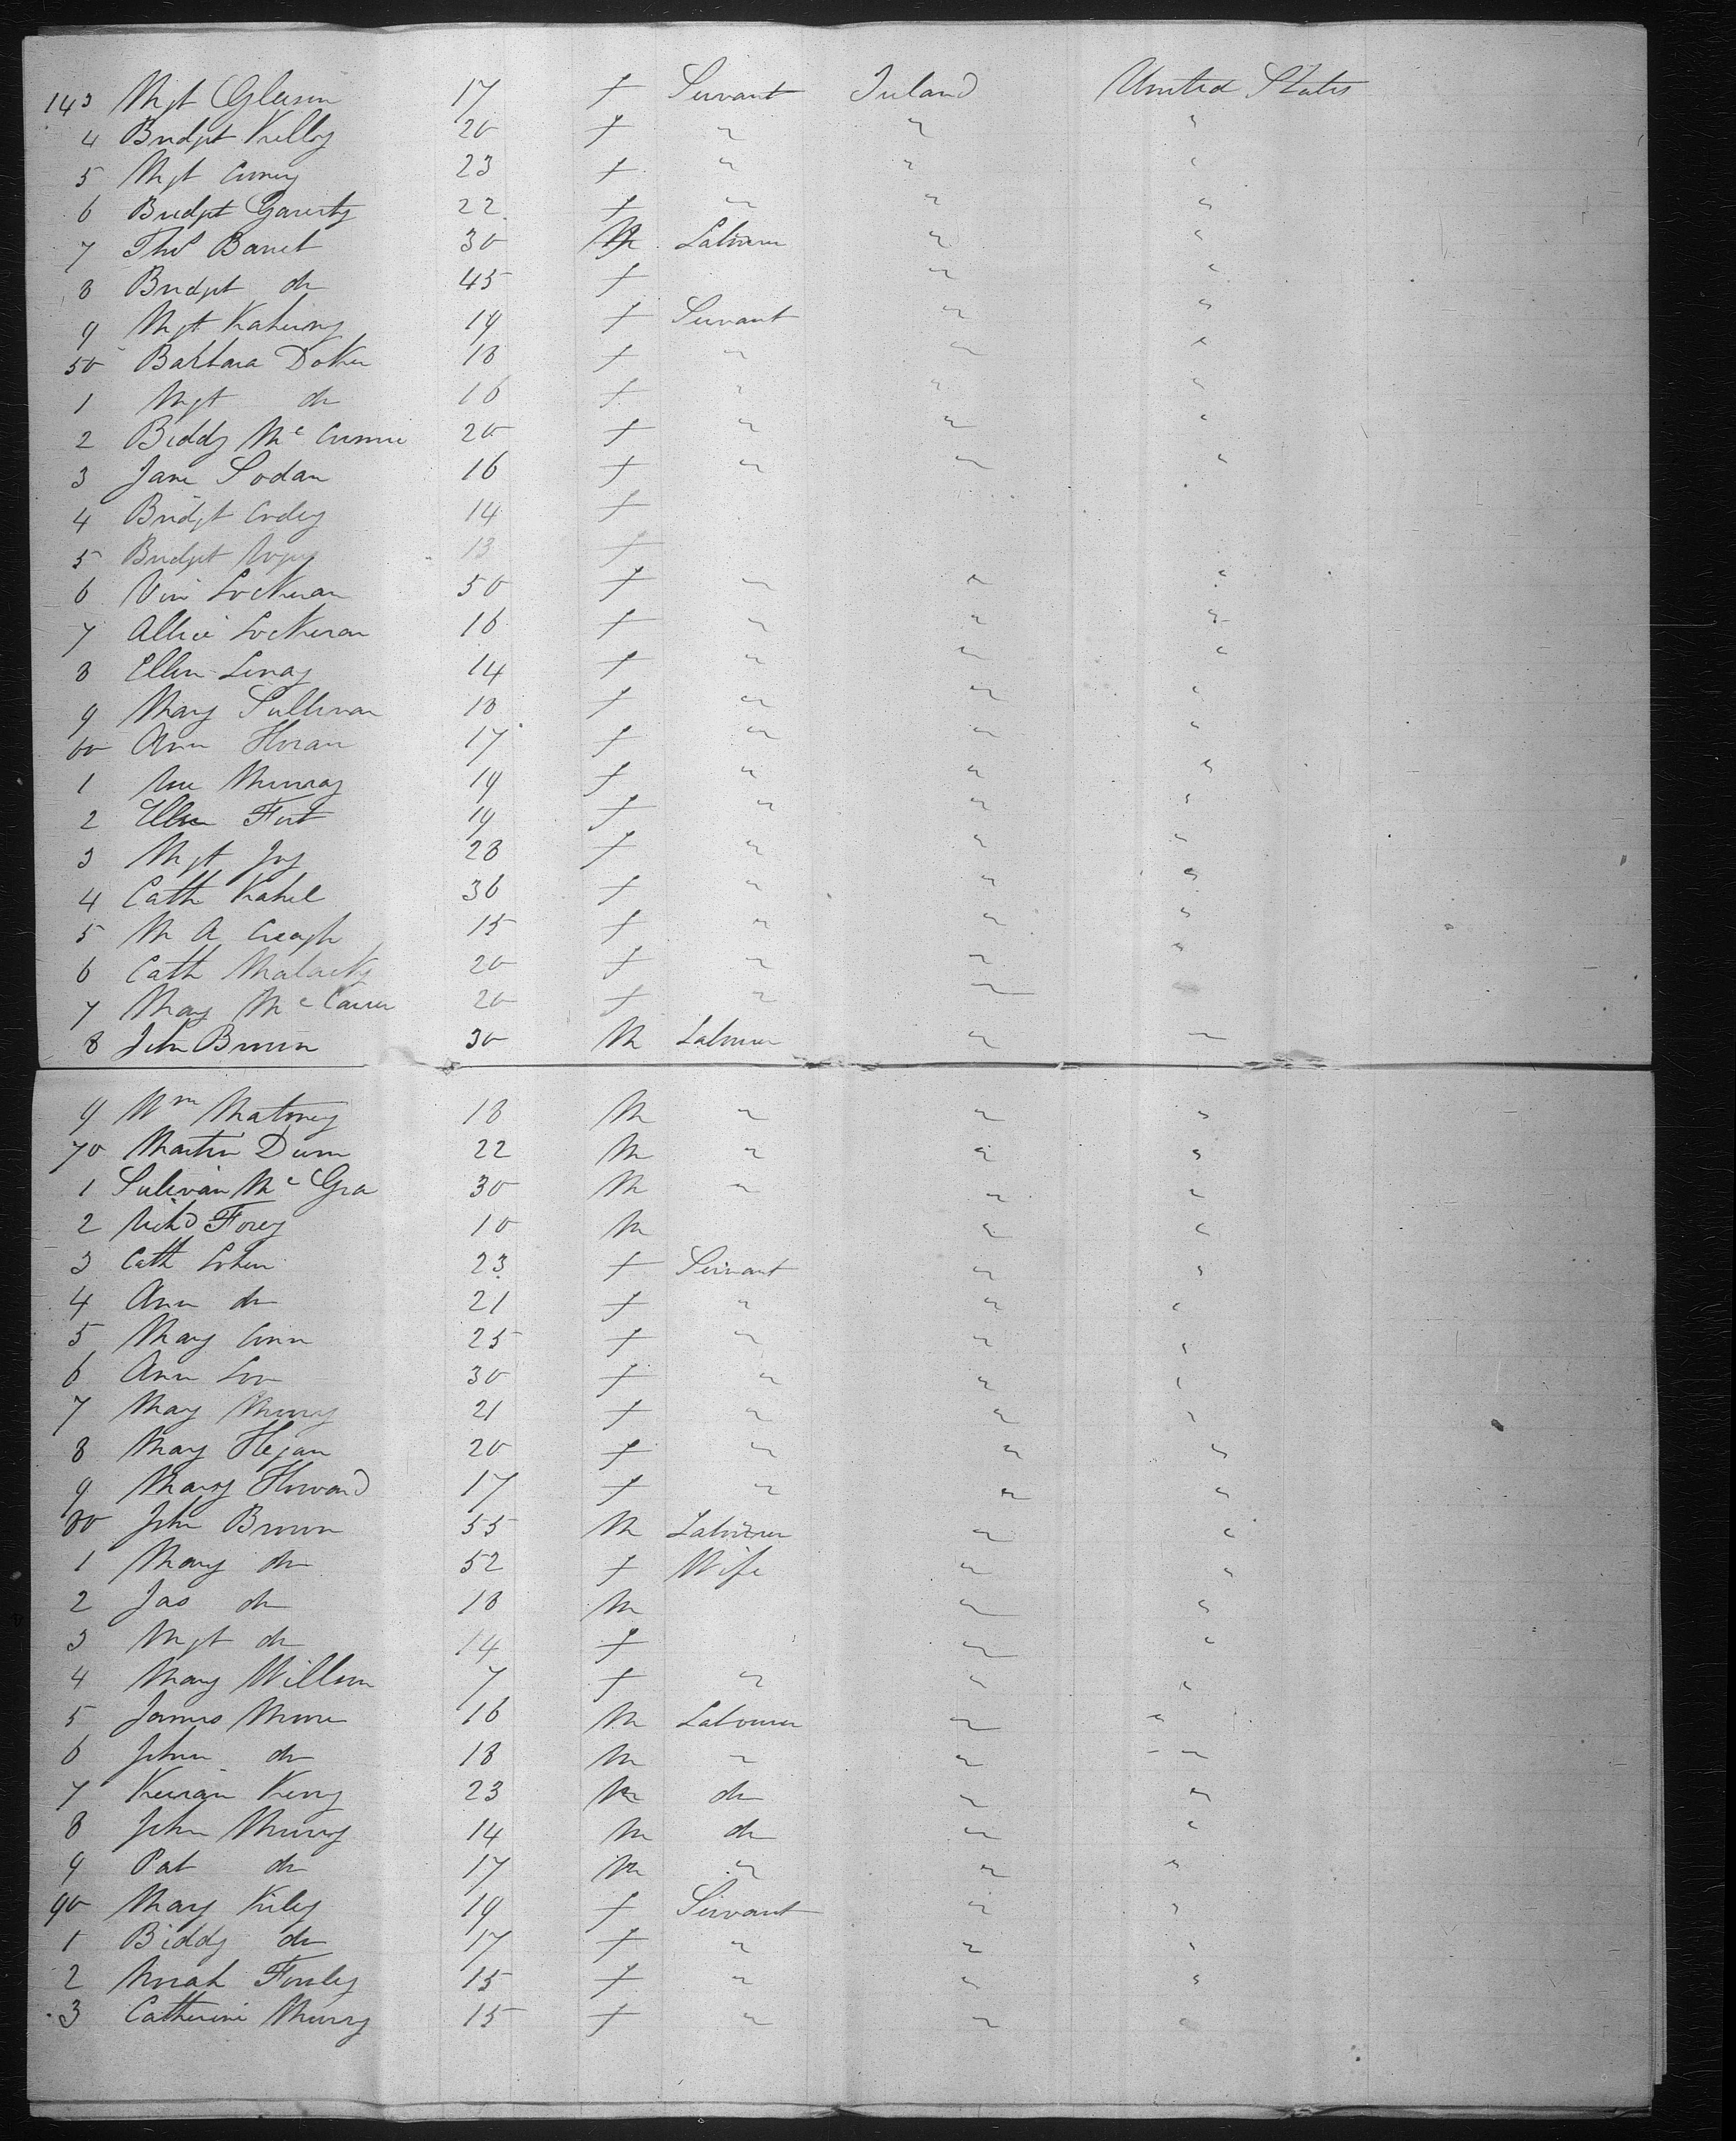 143 Mgt Gleeson 17 f Servant Ireland United States
4 Bridgt Kelly 20 f " " "
5 Mgt 23 f " " "
6 Bridgt Gaverty 22 f " " "
7 Thos Barret 30 M Labourer " "
8 Bridgt do 45 f " "
9 Mgt 19 f Servant " "
50 Barbara 18 f " " "
1 Mgt do 16 f " " "
2 Biddy Mc 20 f " " "
3 Jane Sodan 16 f " " "
4 Bridgt Codey 14 f
5 Bridgt 13 f
6 Win Lockeran 50 f " " "
7 Allice Lockeran 16 f " " "
8 Ellen 14 f " " "
9 Mary Sullivan 18 f " " "
60 Ann Horan 17 f " " "
1 Murray 19 f " " "
2 Ellen Fort 19 f " " "
3 Mgt Joy 28 f " " "
4 Cath Kahel 36 f " " "
5 M A Creagh 15 f " " "
6 Cath Malacky 20 f " " "
7 Mary Mc 20 f " " "
8 John Brown 30 M Labourer " "
9 Wm Matoney 18 M " " "
70 Martin Dunn 22 M " " "
1 Sulivan Mc Gra 30 M " " "
2 Michd Forey 10 M " "
3 Cath 23 f Servant " "
4 Ann do 21 f " " "
5 Mary Conn 25 f " " "
6 Ann 30 f " " "
7 Mary Murry 21 f " " "
8 Mary Hegan 20 f " " "
9 Mary Howard 17 f " " "
80 John Brown 55 M Labourer " "
1 Mary do 52 f Wife " "
2 Jas do 18 M " "
3 Mgt do 14 f " "
4 Mary Willson 7 f " " "
5 James Moore 16 M Labourer " "
6 John do 18 M " " "
7 Keiran Kerry 23 M do " "
8 John Murry 14 M do " "
9 Pat do 17 M " " "
90 Mary Kiley 19 f Servant " "
1 Biddy do 17 f " " "
2 Norah Fowley 15 f " " "
3 Catherine Murry 15 f " " "